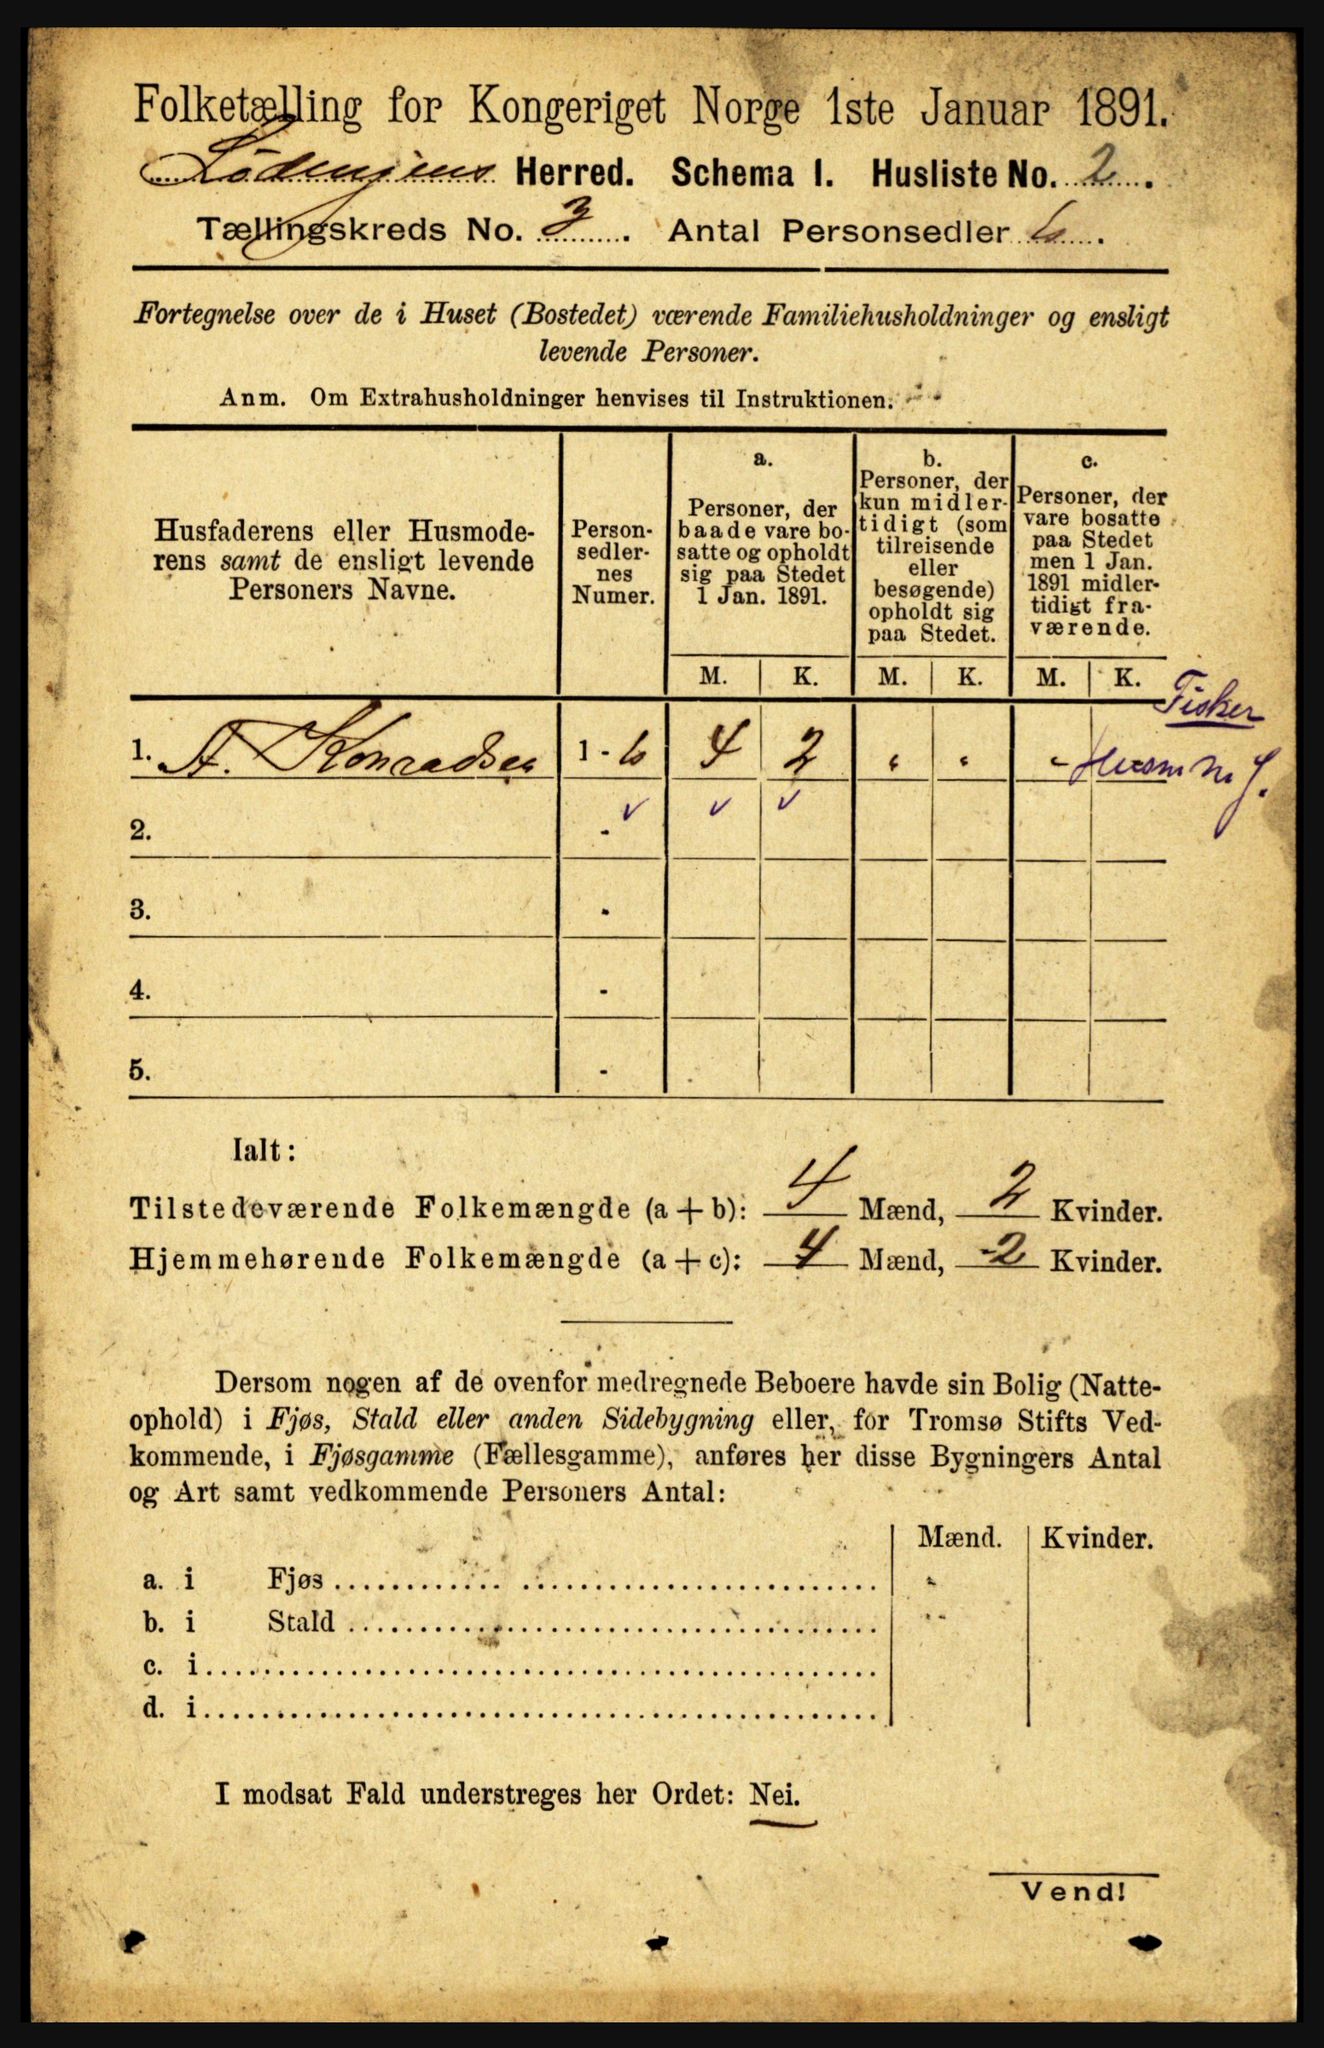 Folketælling for Kongeriget Norge 1ste Januar 1891.
Lødingens Herred. Schema I. Husliste No. 2.
Tællingskreds No. 3. Antal Personsedler 6.
Fortegnelse over de i Huset (Bostedet) værende Familiehusholdninger og ensligt
levende Personer.
Anm. Om Extrahusholdninger henvises til Instruktionen.
Husfaderens eller Husmode-
rens samt de ensligt levende
Personers Navne.
Person-
sedler-
nes
Numer.
a.
Personer, der
baade vare bo-
satte og opholdt
sig paa Stedet
1 Jan. 1891.
b.
Personer, der
kun midler-
tidigt (som
tilreisende
eller
besøgende)
opholdt sig
paa Stedet.
c.
Personer, der
vare bosatte
paa Stedet
men 1 Jan.
1891 midler-
tidigt fra-
værende.
M. K. M. K. M. K.
Fisker
1. A. Konradsen 1 - 6 4 2 " " - Husm m J.
2. - ✓ ✓ ✓
3. -
4. -
5. -
Ialt:
Tilstedeværende Folkemængde (a + b): 4 Mænd, 2 Kvinder.
Hjemmehørende Folkemængde (a + c): 4 Mænd, 2 Kvinder.
Dersom nogen af de ovenfor medregnede Beboere havde sin Bolig (Natte-
ophold) i Fjøs, Stald eller anden Sidebygning eller, for Tromsø Stifts Ved-
kommende, i Fjøsgamme (Fællesgamme), anføres her disse Bygningers Antal
og Art samt vedkommende Personers Antal:
Mænd. Kvinder.
a. i Fjøs "
b. i Stald "
c. i
d. i
I modsat Fald understreges her Ordet: Nei.
Vend!